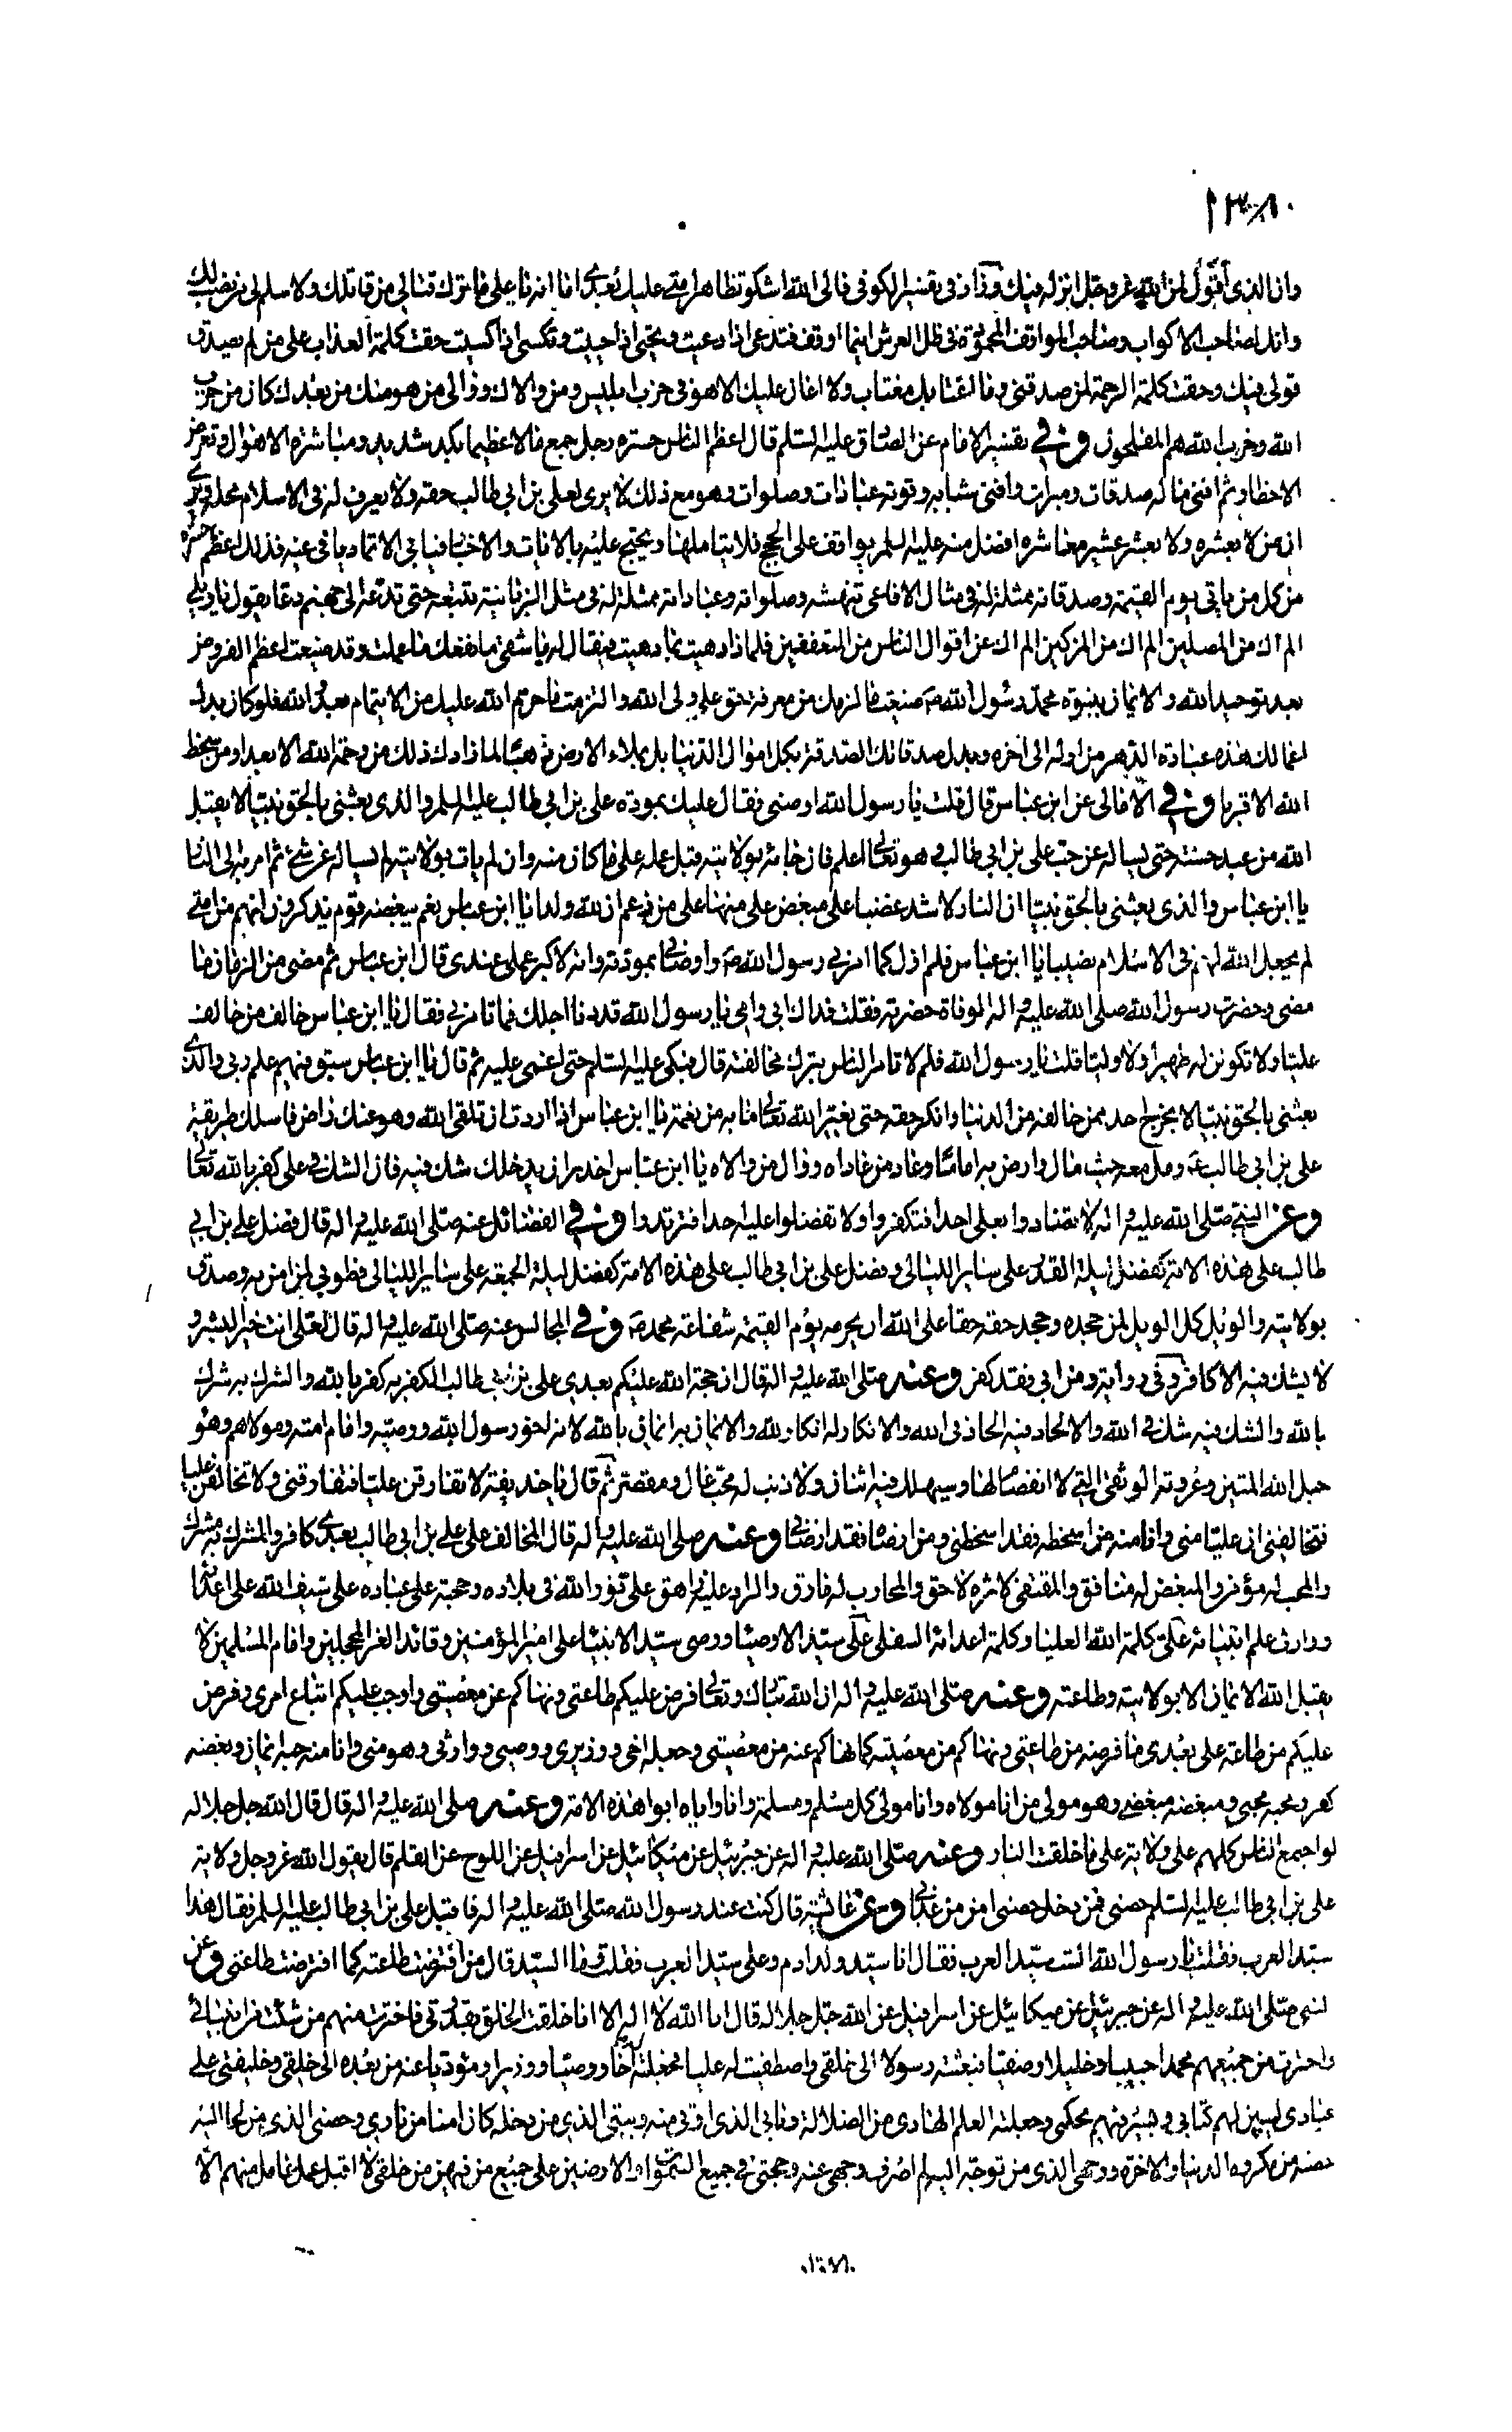 وان الذي أقول لمن الله عز وجل انزله فيك وزاد في تفسير الكوفي فالى الله اشكو تظاهر امتي عليك بعدي اما انه يا علي ما ترك قتالي من قاتلك ولا سلم لي من نصب لك
وانك لصاحب الاكواب وصاحب المواقف المحمودة في ظل العرش اينما اوقف فتدعى اذا دعيت وتحيى اذا حييت وتكسى اذا كسيت حقت كلمة العذاب على من لم يصدق
قولي فيك وحقت كلمة الرحمة لمن صدقني وما اغتابك مغتاب ولا اعان عليك الا هو في حزب ابليس ومن والاك ووالى من هو منك من بعدك كان من حزب
الله وحزب الله هم المفلحون وفي تفسير الامام عن الصادق عليه السلم قال اعظم الناس حسرة رجل جمع مالا عظيما بكد شديد ومباشرة الاهوال وتعرض
الاخطار ثم افنى ماله صدقات ومبرات وافنى شبابه وقوته عبادات وصلوات وهو مع ذلك لا يرى لعلي بن ابي طالب حقه ولا يعرف له في الاسلام محله ويرى
ان من لا بعشره ولا بعشر عشير معشاره افضل منه عليه السلم يواقف على الحجج فلا يتاملها ويحتج عليه بالايات والاخبار فيابى الا تماديا في غيه فذلك اعظم حسرة
من كل من ياتي يوم القيمة وصدقاته ممثلة له في مثال الافاعي تنهشه وصلواته وعباداته ممثلة له في مثل الزبانية تتبعه حتى تدعه الى جهنم دعا يقول يا ويلي
الم اك من المصلين الم اك من المزكين الم اك عن اموال الناس من المتعففين فلماذا دهيت بما دهيت فيقال له يا شقي ما نفعك ما عملت وقد ضيعت اعظم الفروض
بعد توحيد الله والايمان بنبوة محمد رسول الله ص ضيعت ما لزمك من معرفة حق علي ولي الله والتزمت ما حرم الله عليك من الايتمام بعدو الله فلو كان بدل
اعمالك هذه عبادة الدهر من اوله الى اخره وبدل صدقاتك الصدقة بكل اموال الدنيا بل بملاء الارض ذهبا لما زادك ذلك من رحمة الله الا بعدا ومن سخط
الله الا قربا وفي الامالى عن ابن عباس قال قلت يا رسول الله اوصني فقال عليك بمودة علي بن ابي طالب عليه السلم والذي بعثني بالحق نبيا لا يقبل
الله من عبد حسنة حتى يسأله عن حب علي بن ابي طالب وهو تعالى اعلم فان جائه بولايته قبل عمله على ما كان منه وان لم يات بولايته لم يساله عن شئ ثم امر به الى النار
يا ابن عباس والذي بعثني بالحق نبيا ان النار لاشد غضبا على مبغض علي منها على من زعم ان لله ولدا يا ابن عباس نعم يبغضه قوم يذكرون انهم من امتي
لم يجعل الله لهم في الاسلام نصيبا يا ابن عباس فلم ازل كما امرني رسول الله ص واوصاني بمودته وانه لاكبر عملي عندي قال ابن عباس ثم مضى من الزمان ما
مضى وحضرت رسول الله صلى الله عليه واله الوفاة حضرته فقلت فداك ابي وامي يا رسول الله قد دنا اجلك فما تامرني فقال يا ابن عباس خالف من خالف
عليا ولا تكونن له ظهيرا ولا وليا قلت يا رسول الله فلم لا تامر الناس بترك مخالفته قال فبكى عليه السلم حتى اغمى عليه ثم قال يا ابن عباس سبق فيهم علم ربي والذي
بعثني بالحق نبيا لا يخرج احد ممن خالفه من الدنيا وانكر حقه حتى يغير الله تعالى ما به من نعمة يا ابن عباس اذا اردت ان تلقى الله وهو عنك راض فاسلك طريقة
علي بن ابي طالب ع ومل معه حيث مال وارض به اماما وعاد من عاداه ووال من والاه يا ابن عباس احذر ان يدخلك شك فيه فان الشك في علي كفر بالله تعالى
وعن النبي صلى الله عليه واله لا تضادوا بعلي احدا فتكفروا ولا تفضلوا عليه احدا فترتدوا وفي الفضائل عنه صلى الله عليه واله قال فضل علي بن ابي
طالب على هذه الامة كفضل ليلة القدر على ساير الليالي وفضل علي بن ابي طالب على هذه الامة كفضل ليلة الجمعة على ساير الليالي فطوبى لمن امن به وصدق
بولايته والويل كل الويل لمن جحده وجحد حقه حقا على الله ان يحرمه يوم القيمة شفاعة محمد ص وفي المجالس عنه صلى الله عليه واله قال لعلي انت خير البشر و
لا يشك فيه الا كافر وفي رواية ومن ابى فقد كفر وعنه صلى الله عليه واله قال ان حجة الله عليكم بعدي علي بن ابي طالب الكفر به كفر بالله والشرك به شرك
بالله والشك فيه شك في الله والالحاد فيه الحاد في الله والانكار له انكار لله والايمان به ايمان بالله لانه اخو رسول الله ووصيه وامام امته ومولاهم وهو
حبل الله المتين وعروته الوثقى التي لا انفصام لها وسيهلك فيه اثنان ولا ذنب له محب غال ومقصر ثم قال يا حذيفة لا تفارقن عليا فتفارقني ولا تخالفن عليا
فتخالفني ان عليا مني وانا منه من اسخطه فقد اسخطني ومن ارضاه فقد ارضاني وعنه صلى الله عليه واله قال المخالف على علي بن ابي طالب بعدي كافر والمشرك به مشرك
والمحب له مؤمن والمبغض له منافق والمقتفي لاثره لاحق والمحارب له مارق والراد عليه زاهق علي نور الله في بلاده وحجته على عباده علي سيف الله على اعدائه
ووارث علم انبيائه علي كلمة الله العليا وكلمة اعدائه السفلى علي سيد الاوصيا ووصي سيد الانبيا علي امير المؤمنين وقائد الغر المحجلين وامام المسلمين لا
يقبل الله الايمان الا بولايته وطاعته وعنه صلى الله عليه واله ان الله تبارك وتعالى فرض عليكم طاعتي ونهاكم عن معصيتي واوجب عليكم اتباع امري وفرض
عليكم من طاعة علي بعدي ما فرضه من طاعتي ونهاكم من معصيته كما نهاكم عنه من معصيتي وجعله اخي ووزيري ووصيي ووارثي وهو مني وانا منه حبه ايمان وبغضه
كفر محبه محبي ومبغضه مبغضي وهو مولى من انا مولاه وانا مولى كل مسلم ومسلمة وانا واياه ابوا هذه الامة وعنه صلى الله عليه واله قال قال الله جل جلاله
لو اجتمع الناس كلهم على ولاية علي ما خلقت النار وعنه صلى الله عليه واله عن جبرئيل عن ميكائيل عن اسرافيل عن اللوح عن القلم قال يقول الله عز وجل ولاية
علي بن ابي طالب عليه السلم حصني فمن دخل حصني امن من عذابي وعن عائشة قال كنت عند رسول الله صلى الله عليه واله فاقبل علي بن ابي طالب عليه السلم فقال هذا
سيد العرب فقلت يا رسول الله الست سيد العرب فقال انا سيد ولد ادم وعلي سيد العرب فقلت وما السيد قال من افترضت طاعته كما افترضت طاعتي وعن
لنبي صلى الله عليه واله عن جبرئيل عن ميكائيل عن اسرافيل عن الله جل جلاله قال انا الله لا اله الا انا خلقت الخلق بقدرتي فاخترت منهم من شئت من انبيائي
واخترت من جميعهم محمدا حبيبا وخليلا وصفيا فبعثته رسولا الى خلقي واصطفيت له عليا فجعلته له اخا ووصيا ووزيرا ومؤديا عنه من بعده الى خلقي وخليفتي على
عبادي ليبين لهم كتابي ويسير فيهم بحكمي وجعلته العلم الهادي من الضلالة وبابي الذي اوتى منه وبيتي الذي من دخله كان امنا من ناري وحصني الذي من لجا اليه
حصنه من مكروه الدنيا والاخرة ووجهي الذي من توجه اليه لم اصرف وجهي عنه وحجتي في جميع السموات والارضين على جميع من فيهن من خلقي لا اقبل عمل عامل منهم الا